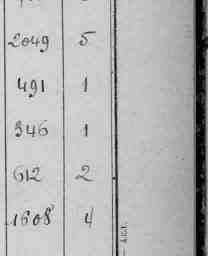 2049 5
491 1
346 1
612 2
1608 4